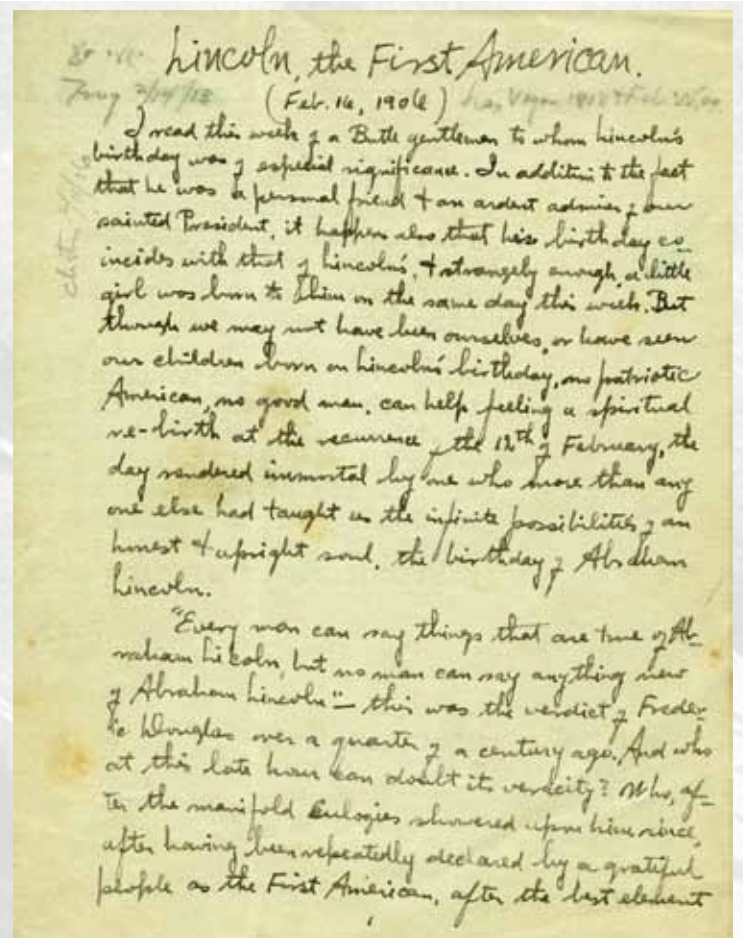 Lincoln, the First American.
(Feb. 16, 1906)
I read this week of a Butte gentleman to whom Lincoln's
birthday was of especial significance. In addition to the fact
that he was a personal friend & an ardent admirer of our
sainted President, it happens also that his birthday co-
incides with that of Lincoln's, & strangely enough, a little
girl was born to him on the same day this week. But
though we may not have been ourselves, or have seen
our children born on Lincoln's birthday, no patriotic
American, no good man, can help feeling a spiritual
re-birth at the recurrence of the 12th of February, the
day rendered immortal by one who more than any
one else had taught us the infinite possibilities of an
honest & upright soul, the birthday of Abraham
Lincoln.
"Every man can say things that are true of Ab-
raham Lincoln, but no man can say anything new
of Abraham Lincoln" – this was the verdict of Freder-
ic Douglas over a quarter of a century ago. And who
at this late hour can doubt its veracity? Who, af-
ter the manifold Eulogies showered upon him since,
after having been repeatedly declared by a grateful
people as the First American, after the best element